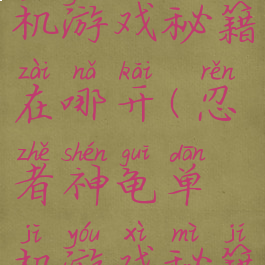 机游戏秘籍
zài nǎ kāi rěn
在哪开(忍
zhě shén guī dān
者神龟单
jī yóu xì mì jí
机游戏秘籍